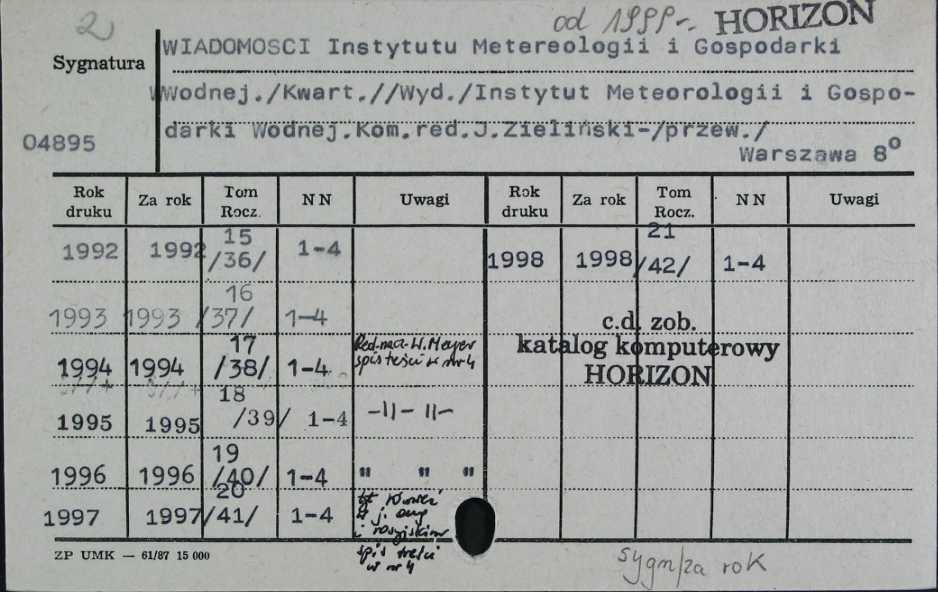 2 od 1999r. HORIZON
Sygnatura WIADOMOSCI Instytutu Metereologii i Gospodarki
Wodnej./Kwart.//Wyd./Instytut Meteorologii i Gospo-
04895 darki Wodnej.Kom.red.J.Zieliński-/przew./
Warszawa 8°
Rok druku Za rok Tom Rocz. NN Uwagi Rok druku Za rok Tom Rocz. NN Uwagi
1992 1992 15 /36/ 1-4 1998 1998 21 /42/ 1-4
1993 1993 16 /37/ 1-4
c.d. zob.
katalog komputerowy
HORIZON
1994 1994 17 /38/ 1-4 Red.nacz. W. Meyer
spis treści w nr 4
1995 1995 18 /39/ 1-4 -11- 11-
1996 1996 19 /40/ 1-4 " " "
1997 1997 20 /41/ 1-4
j. ang
i rosyjskim
spis treści
w nr 4
ZP UMK — 61/87 15 000
sygn/za rok